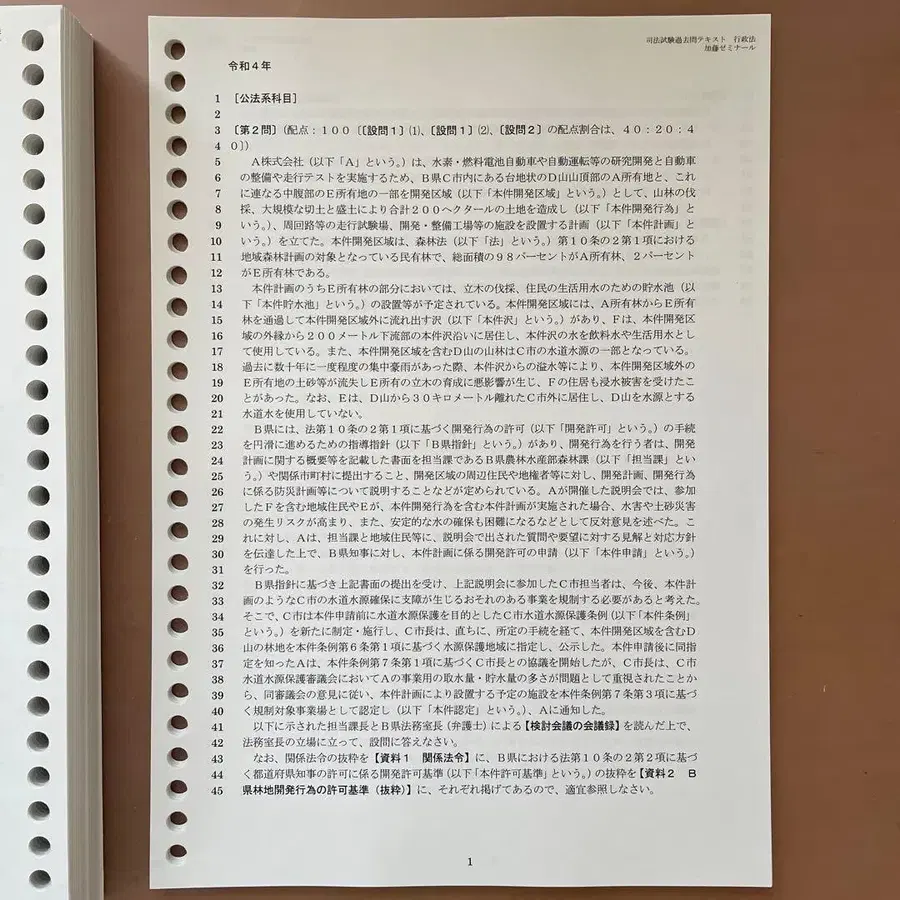 司法試験過去問テキスト 行政法
加藤ゼミナール
令和4年
1 [公法系科目]
2
3 〔第2問〕(配点:100〔〔設問1〕⑴、〔設問1〕⑵、〔設問2〕の配点割合は、40:20:4
4 0〕)
5 A株式会社(以下「A」という。)は、水素・燃料電池自動車や自動運転等の研究開発と自動車
6 の整備や走行テストを実施するため、B県C市内にある台地状のD山山頂部のA所有地と、これ
7 に連なる中腹部のE所有地の一部を開発区域(以下「本件開発区域」という。)として、山林の伐
8 採、大規模な切土と盛土により合計200ヘクタールの土地を造成し(以下「本件開発行為」と
9 いう。)、周回路等の走行試験場、開発・整備工場等の施設を設置する計画(以下「本件計画」と
10 いう。)を立てた。本件開発区域は、森林法(以下「法」という。)第10条の2第1項における
11 地域森林計画の対象となっている民有林で、総面積の98パーセントがA所有林、2パーセント
12 がE所有林である。
13 本件計画のうちE所有林の部分においては、立木の伐採、住民の生活用水のための貯水池(以
14 下「本件貯水池」という。)の設置等が予定されている。本件開発区域には、A所有林からE所有
15 林を通過して本件開発区域外に流れ出す沢(以下「本件沢」という。)があり、Fは、本件開発区
16 域の外縁から200メートル下流部の本件沢沿いに居住し、本件沢の水を飲料水や生活用水とし
17 て使用している。また、本件開発区域を含むD山の山林はC市の水道水源の一部となっている。
18 過去に数十年に一度程度の集中豪雨があった際、本件沢からの溢水等により、本件開発区域外の
19 E所有地の土砂等が流失しE所有の立木の育成に悪影響が生じ、Fの住居も浸水被害を受けたこ
20 とがあった。なお、Eは、D山から30キロメートル離れたC市外に居住し、D山を水源とする
21 水道水を使用していない。
22 B県には、法第10条の2第1項に基づく開発行為の許可(以下「開発許可」という。)の手続
23 を円滑に進めるための指導指針(以下「B県指針」という。)があり、開発行為を行う者は、開発
24 計画に関する概要等を記載した書面を担当課であるB県農林水産部森林課(以下「担当課」とい
25 う。)や関係市町村に提出すること、開発区域の周辺住民や地権者等に対し、開発計画、開発行為
26 に係る防災計画等について説明することなどが定められている。Aが開催した説明会では、参加
27 したFを含む地域住民やEが、本件開発行為を含む本件計画が実施された場合、水害や土砂災害
28 の発生リスクが高まり、また、安定的な水の確保も困難になるなどとして反対意見を述べた。こ
29 れに対し、Aは、担当課と地域住民等に、説明会で出された質問や要望に対する見解と対応方針
30 を伝達した上で、B県知事に対し、本件計画に係る開発許可の申請(以下「本件申請」という。)
31 を行った。
32 B県指針に基づき上記書面の提出を受け、上記説明会に参加したC市担当者は、今後、本件計
33 画のようなC市の水道水源確保に支障が生じるおそれのある事業を規制する必要があると考えた。
34 そこで、C市は本件申請前に水道水源保護を目的としたC市水道水源保護条例(以下「本件条例」
35 という。)を新たに制定・施行し、C市長は、直ちに、所定の手続を経て、本件開発区域を含むD
36 山の林地を本件条例第6条第1項に基づく水源保護地域に指定し、公示した。本件申請後に同指
37 定を知ったAは、本件条例第7条第1項に基づくC市長との協議を開始したが、C市長は、C市
38 水道水源保護審議会においてAの事業用の取水量・貯水量の多さが問題として重視されたことか
39 ら、同審議会の意見に従い、本件計画により設置する予定の施設を本件条例第7条第3項に基づ
40 く規制対象事業場として認定し(以下「本件認定」という。)、Aに通知した。
41 以下に示された担当課長とB県法務室長(弁護士)による【検討会議の会議録】を読んだ上で、
42 法務室長の立場に立って、設問に答えなさい。
43 なお、関係法令の抜粋を【資料1 関係法令】に、B県における法第10条の2第2項に基づ
44 く都道府県知事の許可に係る開発許可基準(以下「本件許可基準」という。)の抜粋を【資料2 B
45 県林地開発行為の許可基準(抜粋)】に、それぞれ掲げてあるので、適宜参照しなさい。
1